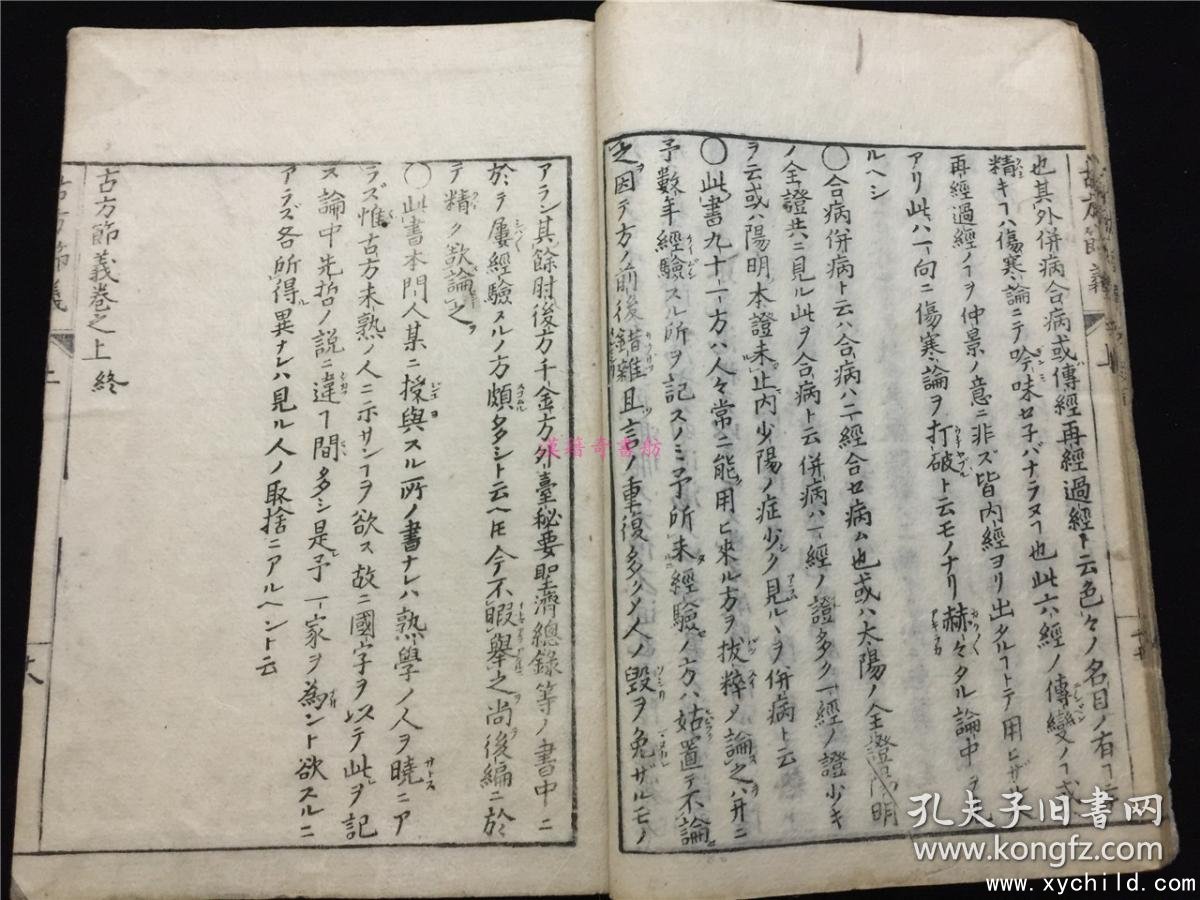 也其外併病合病或傳經再經過經ト云色々ノ名目ノ有ヿ
精キヿハ傷寒論ニテ吟味セ子バナラヌヿ也此六經ノ傳變ノヿ
再經過經ノヿヲ仲景ノ意ニ非ズ皆内經ヨリ出タルヿトテ用ヒザル
アリ此ハ一向ニ傷寒論ヲ打破ト云モノナリ赫々タル論中ヲ
ルヘシ
〇合病併病ト云ハ合病ハ二經合セ病ム也或ハ太陽ノ全證陽明
ノ全證共ニ見ル此ヲ合病ト云併病ハ一經ノ證多ク一經ノ證少キ
ヲ云或ハ陽明本證未止内少陽ノ症少ク見ルヽヲ併病ト云
〇此書九十一方ハ人々常ニ能用ヒ來ル方ヲ拔粹ノ論之ハ并ニ
予數年經驗スル所ヲ記スノミ予所未經驗ノ方ハ姑置テ不論
之因テ方ノ前後錯雜且言ノ重復多クメ人ノ毀ヲ免ザルモノ
アラン其餘肘後方千金方外臺秘要聖濟總錄等ノ書中ニ
於テ屢經驗スルノ方頗多シト云ヘ𪜈今不暇舉之尚後編ニ於
テ精ク欲論之
〇此書本門人某ニ授與スル所ノ書ナレハ熟學ノ人ヲ曉ニア
ラズ惟古方未熟ノ人ニホサンヿヲ欲ス故ニ國字ヲ以テ此ヲ記
ス論中先哲ノ説ニ違ヿ間多シ是予一家ヲ為ント欲スルニ
アラズ各所得異ナレハ見ル人ノ取捨ニアルヘント云
古方節義卷之上終
漢籍奇書舫
孔夫子旧书网
www.kongfz.com
www.xychild.com